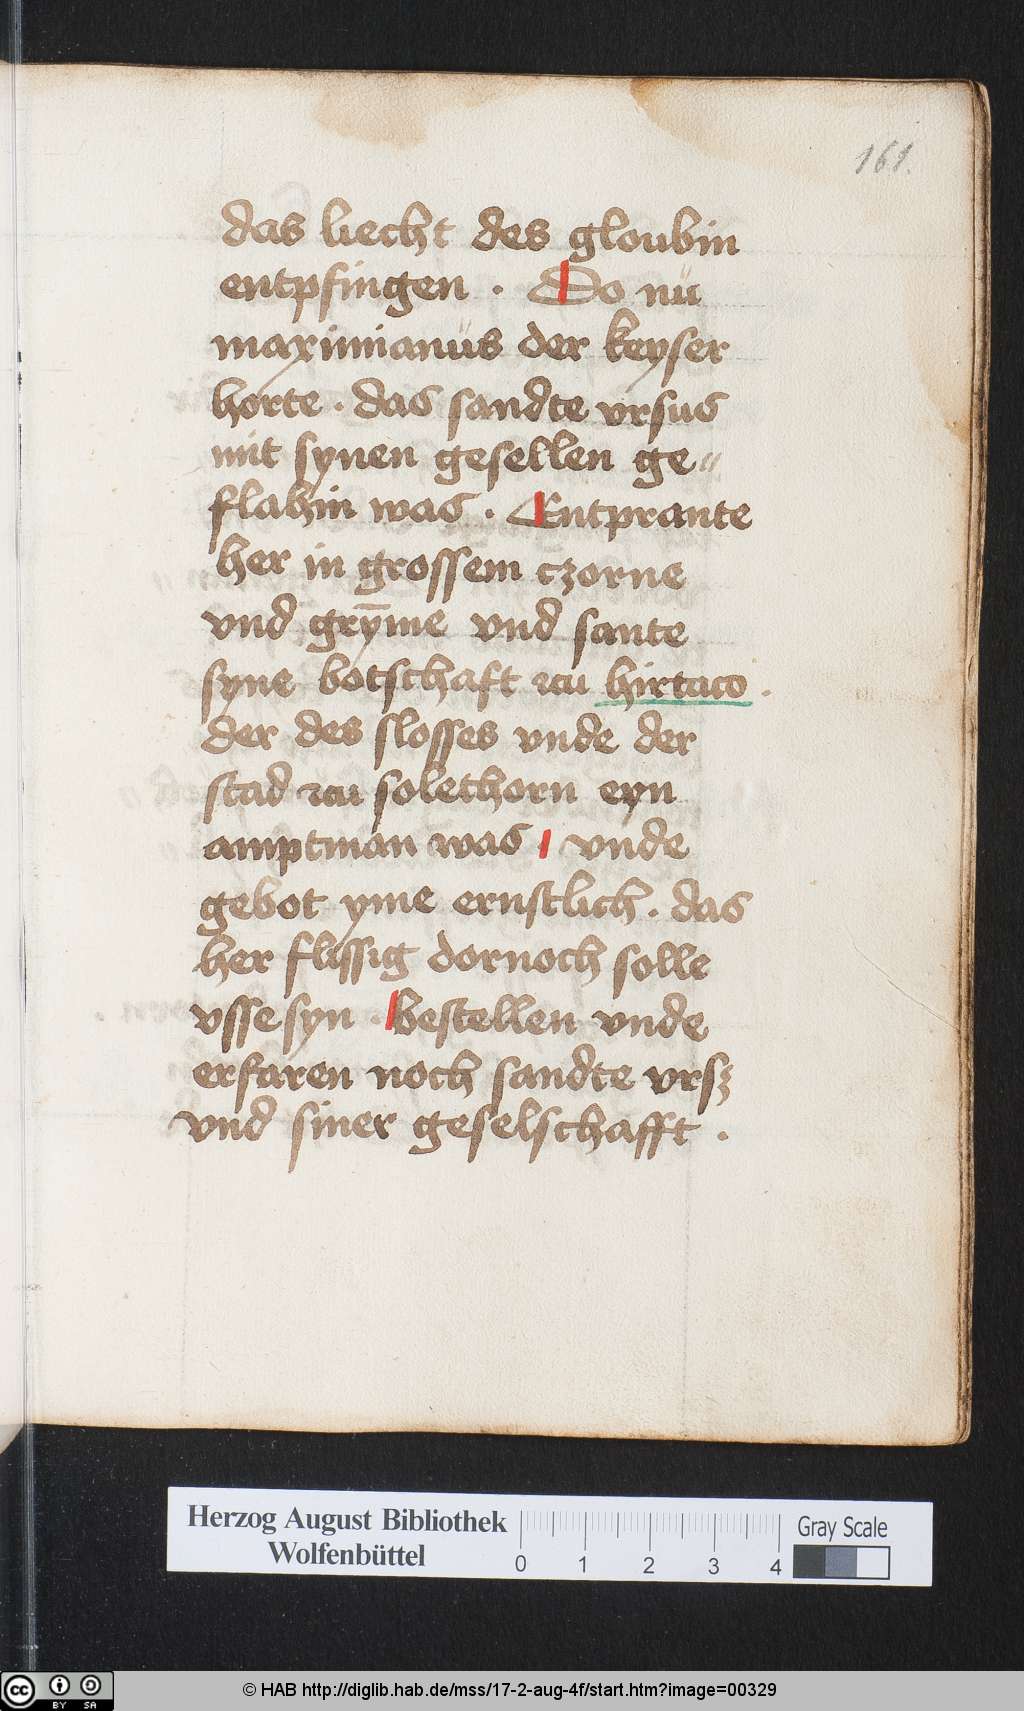 161.
das liecht des gloubin
entpfingen . Do nü
maximianüs der keyser
horte . das sandte vrsus
mit synen gesellen ge〃
flahin was . Entprante
her in grossem czorne
vnd grȳme vnd sante
syne botschaft zcu hirtaco .
der des slosses vnde der
stad zcu solethorn eyn
amptman was . vnde
gebot yme ernstlich . das
her flissig dornoch solle
vsse syn . bestellen vnde
erfaren noch sandte vrsz
vnd siner geselschafft .
Herzog August Bibliothek
Wolfenbüttel
0 1 2 3 4
Gray Scale
cc BY SA
© HAB http://diglib.hab.de/mss/17-2-aug-4f/start.htm?image=00329